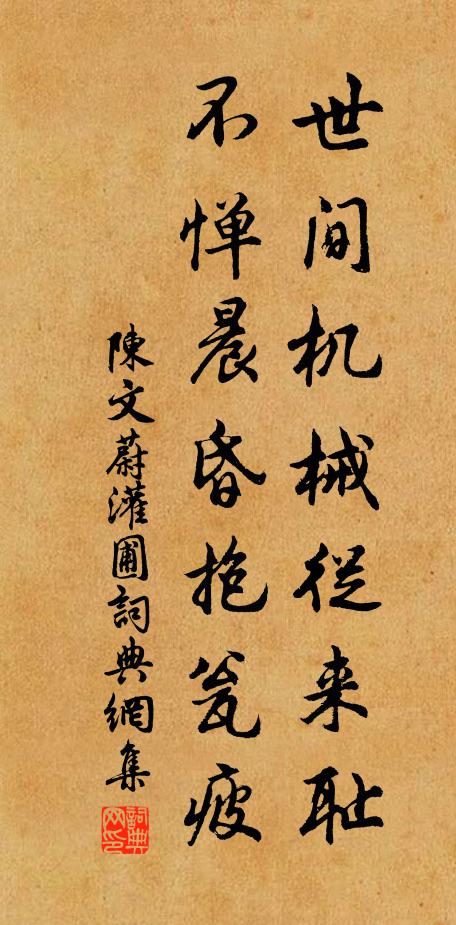 世间机械従来耻
不惮晨昏抱瓮疲
陳文蔚灌圃詞典網集
詞典网印